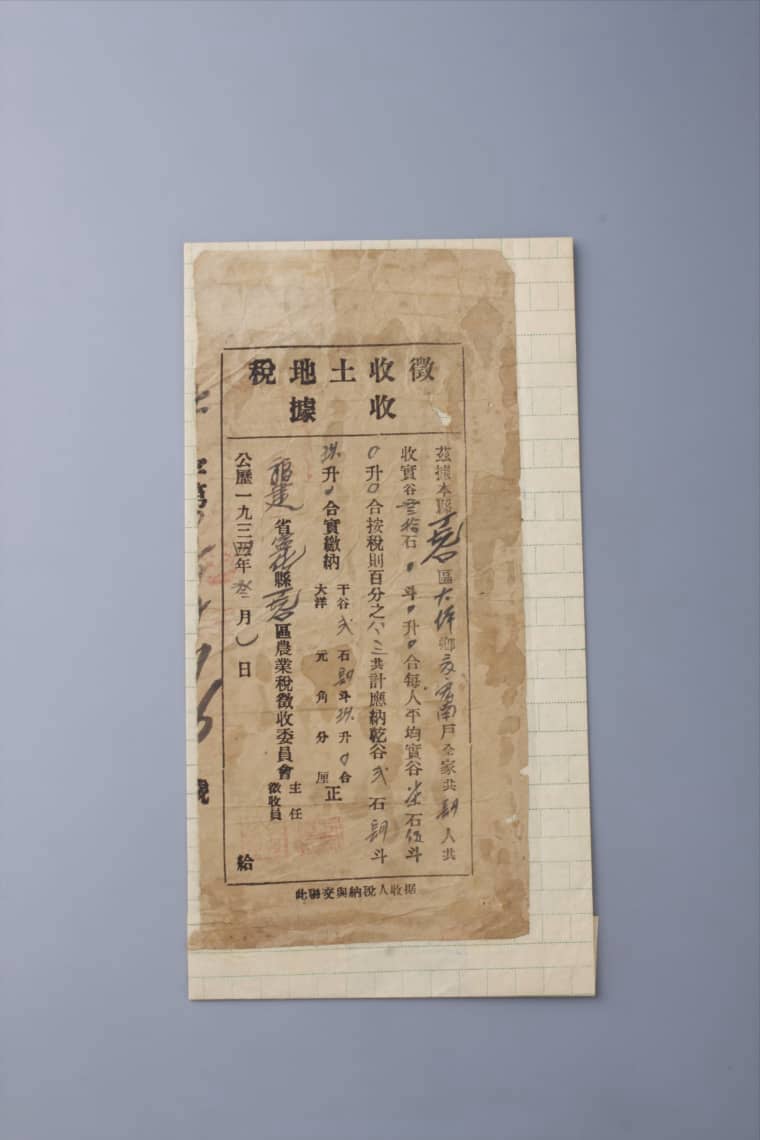 徵收土地稅
收據
茲據本縣區大鄉戶全家共人共
收實谷叁拾石0斗0升0合每人平均實谷柒石伍斗
0升0合按稅則百分之八、三共計應納乾谷弍石斗
升0合實繳納干谷弍石斗升0合正
大洋元角分厘
福建省寧化縣區農業稅徵收委員會主任
徵收員
公歷一九三四年月日給
此聯交與納稅人收据
字第號